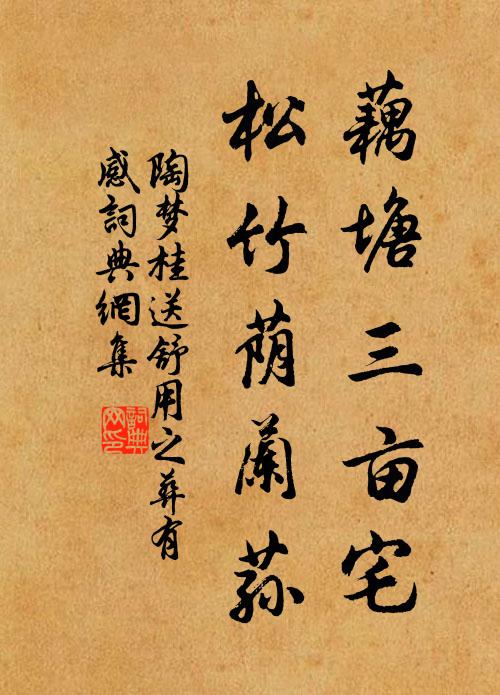 藕塘三亩宅
松竹荫兰荪
陶梦桂送舒用之葬有
感詞典網集
詞典网印